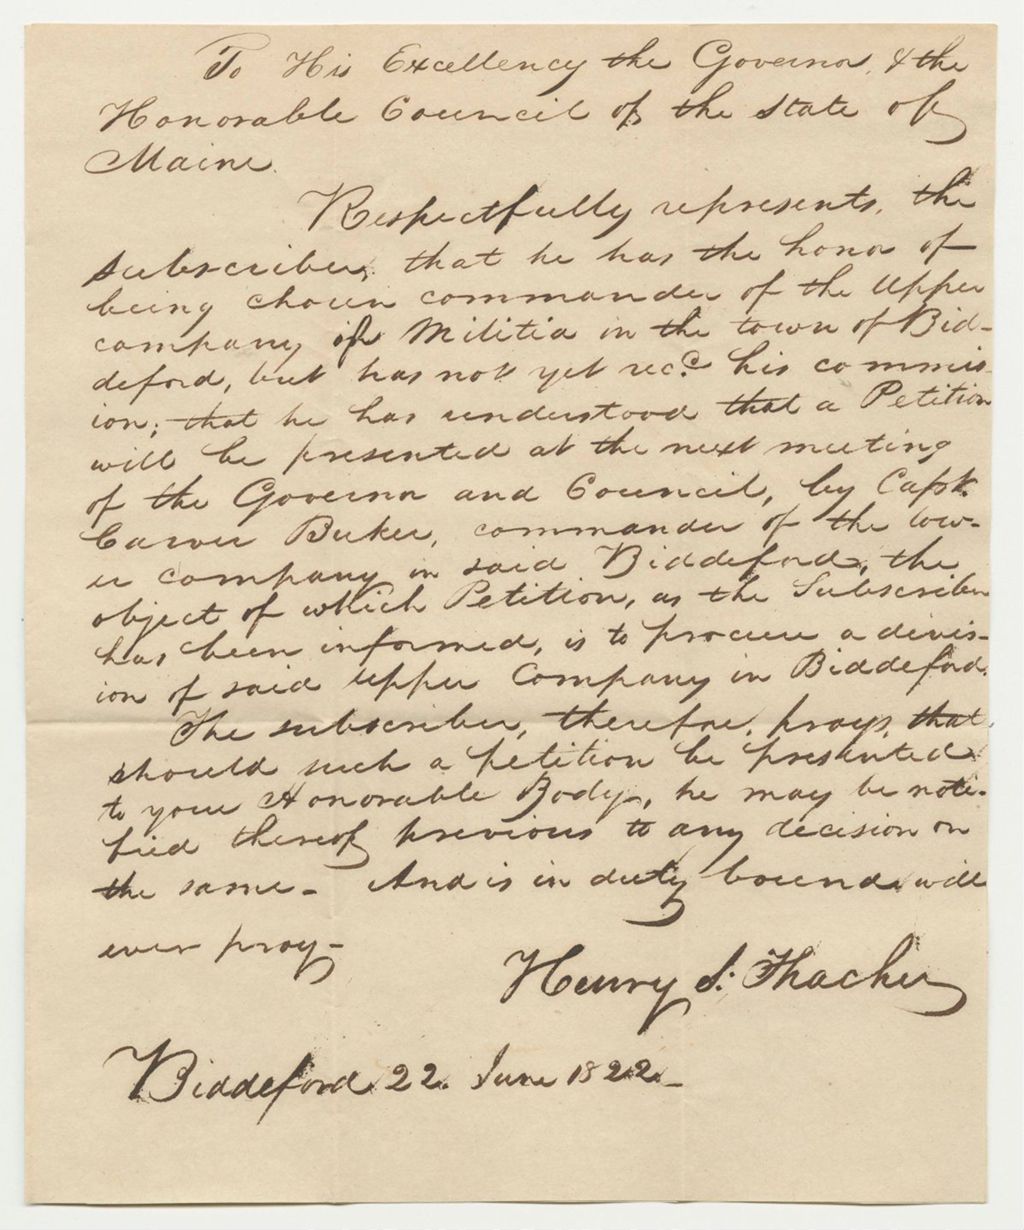 To His Excellency the Governor, & the
Honorable Council of the State of
Maine.
Respectfully represents, the
subscriber, that he has the honor of
being chosen commander of the Upper
company of Militia in the town of Bid-
deford, but has not yet recd. his commis-
ion; that he has understood that a Petition
will be presented at the next meeting
of the Governor and Council, by Capt.
Carver Buker, commander of the low-
er company in said Biddeford, the
object of which Petition, as the Subscriber
has been informed, is to procure a divis-
ion of said upper Company in Biddeford.
The subscriber, therefore, prays, that,
should such a petition be presented
to your Honorable Body, he may be noti-
fied thereof previous to any decision on
the same - And is in duty bound will
ever pray -
Henry S: Thacher
Biddeford 22. June 1822 -